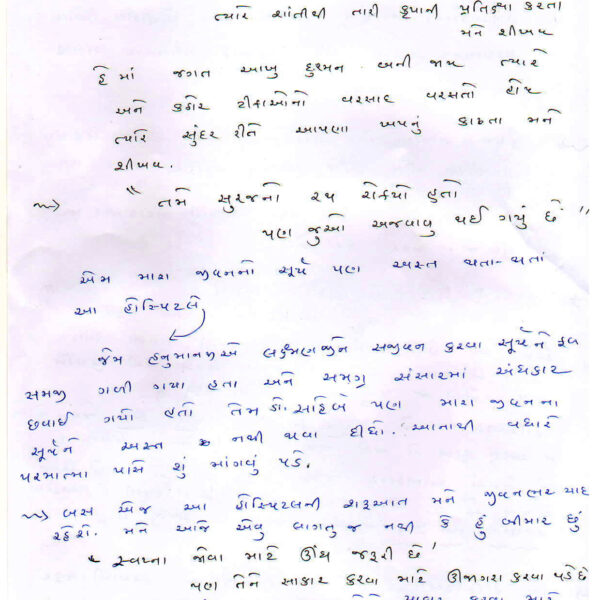 ત્યારે શાંતીથી તારી કૃપાની પ્રતિક્ષા કરતા
મને શીખવ
હે માં જગત આખુ દુશ્મન બની જાય ત્યારે
અને કઠોર ટીકાઓનો વરસાદ વરસતો હોય
ત્યારે સુંદર રીતે આપણા ખપનું કાઢતા મને
શીખવ.
"તમે સુરજનો રથ રોક્યો હતો
પણ જુઓ અજવાવુ થઈ ગયું છે"
એમ મારા જીવનનો સૂર્ય પણ અસ્ત થતા-થતાં
આ હોસ્પિટલે
જેમ હનુમાનજીએ લક્ષ્મણજીને સજીવન કરવા સૂર્યને ફળ
સમજી ગળી ગયા હતા અને સમગ્ર સંસારમાં અંધકાર
છવાઈ ગયો હતો તેમ ડો. સાહેબે પણ મારા જીવનના
સૂર્યને અસ્ત નથી થવા દીધો. આનાથી વધારે
પરમાત્મા પાસે શું માંગવું પડે.
બસ એજ આ હોસ્પિટલની શરૂઆત મને જીવનભર યાદ
રહેશે. મને આજે એવુ લાગતુ જ નથી કે હું બીમાર છું
"સ્વપ્ના જોવા માટે ઊંઘ જરૂરી છે'
પણ તેને સાકાર કરવા માટે ઊજાગરા કરવા પડે છે
કરવા માટે